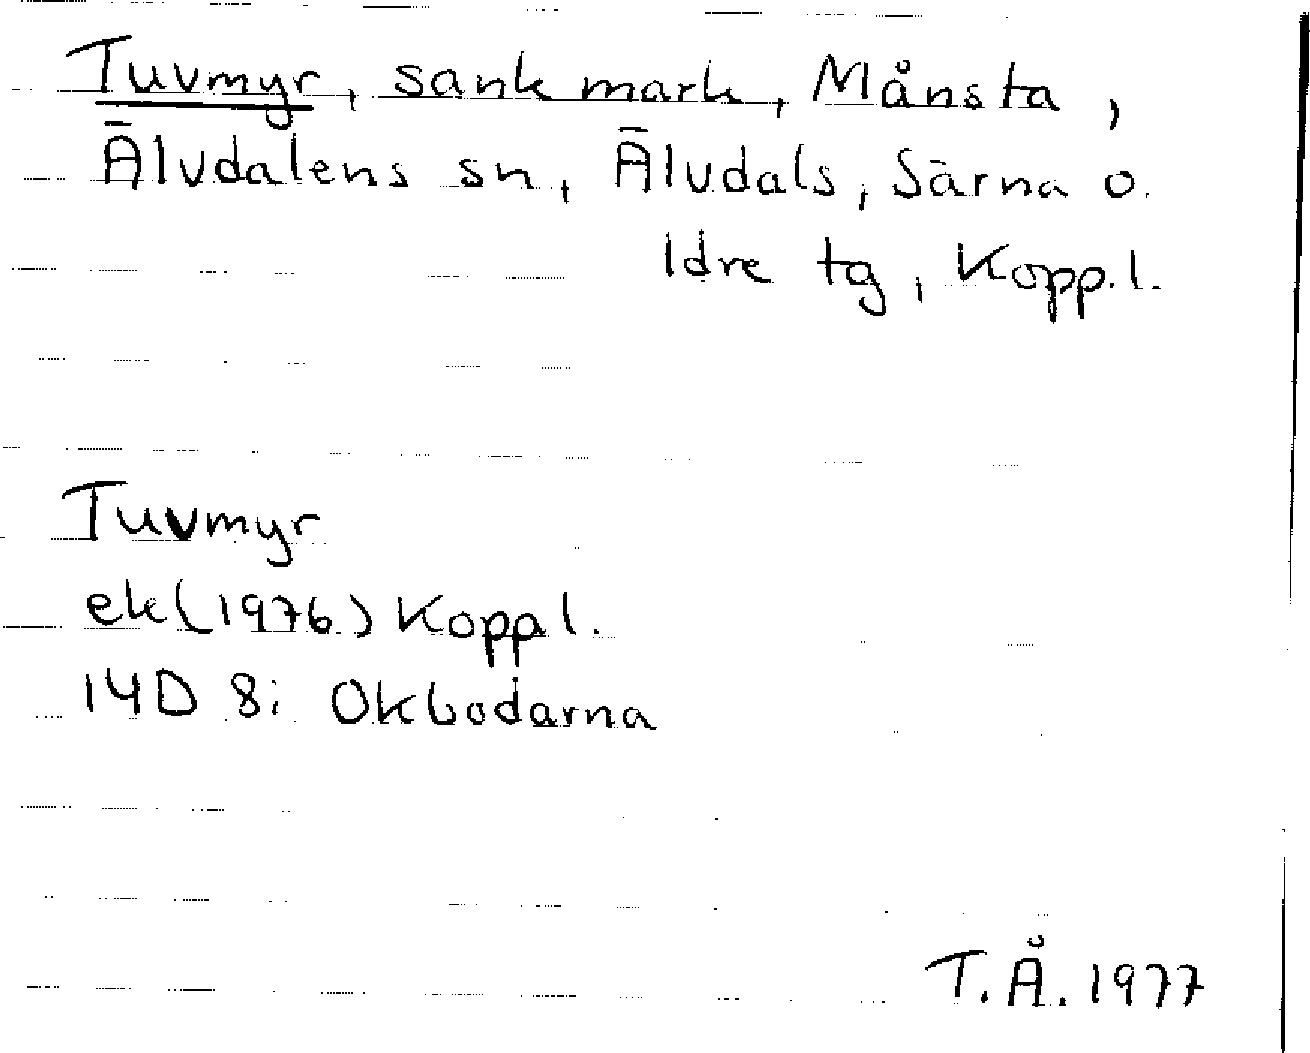 Tuvmyr, sank mark, Månsta,
Älvdalens sn, Älvdals, Särna o.
Idre tg, Kopp.l.
Tuvmyr
ek(1976) Koppl.
14D 8i Okbodarna
T.Å. 1977